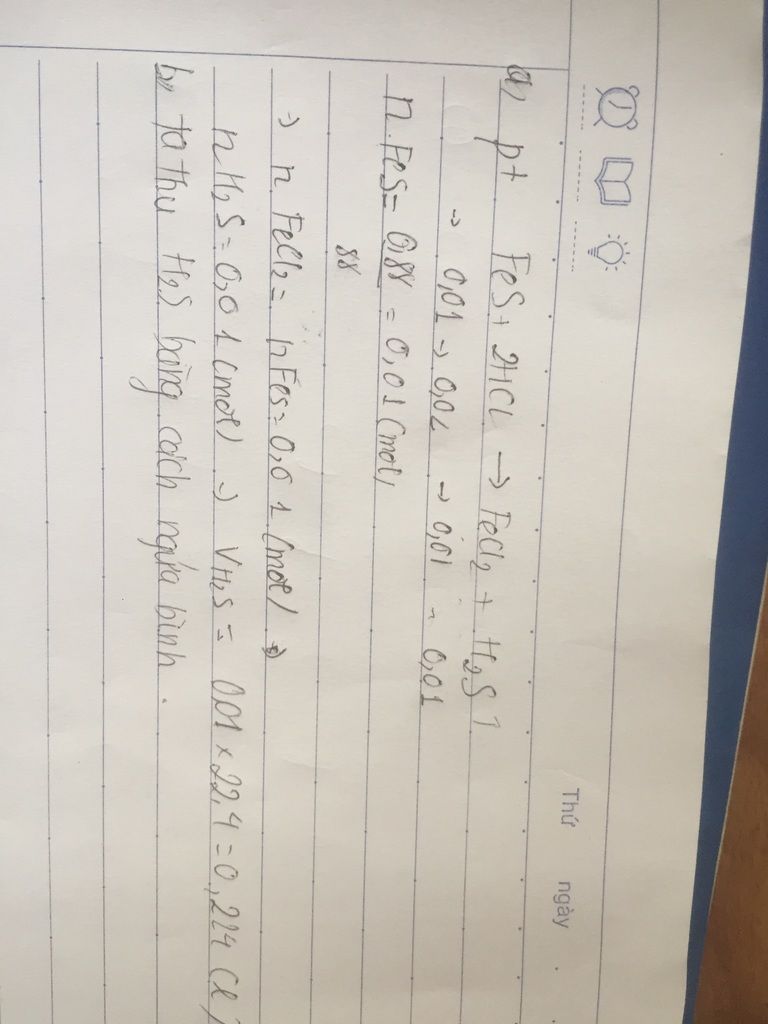 Thứ ngày
a, pt FeS + 2HCl → FeCl₂ + H₂S↑
→ 0,01 → 0,02 → 0,01 - 0,01
n FeS = 0,88 = 0,01 (mol)
88
→ n FeCl₂ = nFeS = 0,01 (mol) →
nH₂S = 0,01 (mol) → VH₂S = 0,01 × 22,4 = 0,224 (l)
b, ta thu H₂S bằng cách ngửa bình.